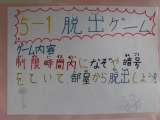 5-1 脱出ゲーム
ゲーム内容
制限時間内になぞや暗号
をといて部屋から脱出しよう!